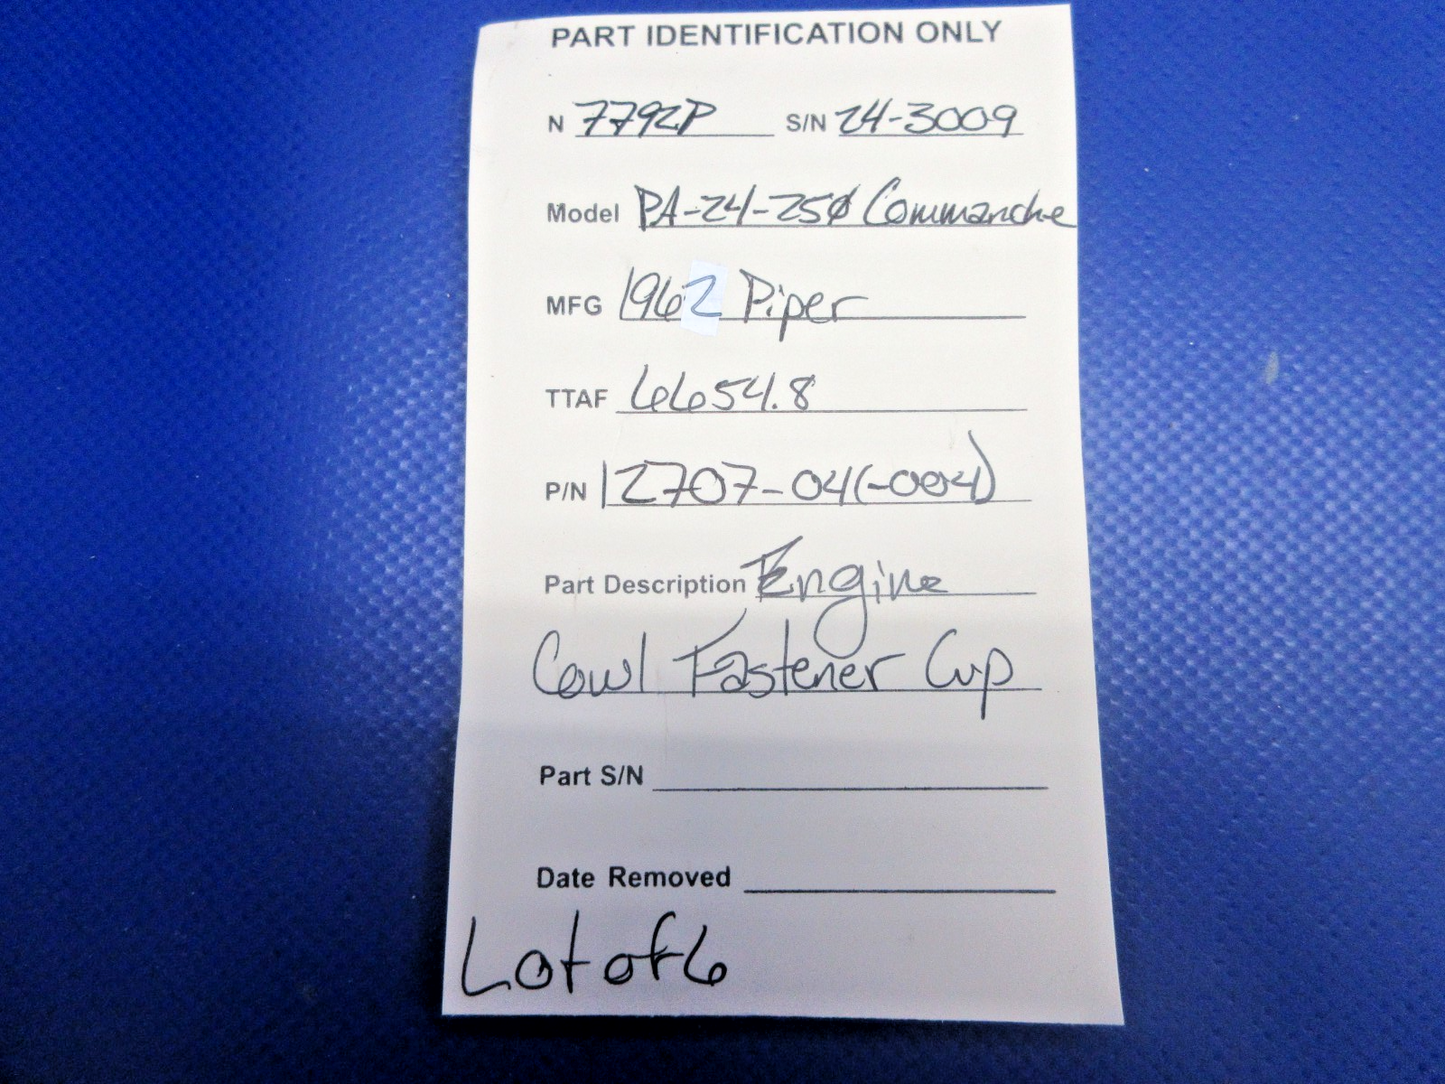 PART IDENTIFICATION ONLY
N 7792P S/N 24-3009
Model PA-24-250 Commanche
MFG 1962 Piper
TTAF 6654.8
P/N 12707-04(-004)
Part Description Engine
Cowl Fastener Cup
Part S/N
Date Removed
Lot of 6